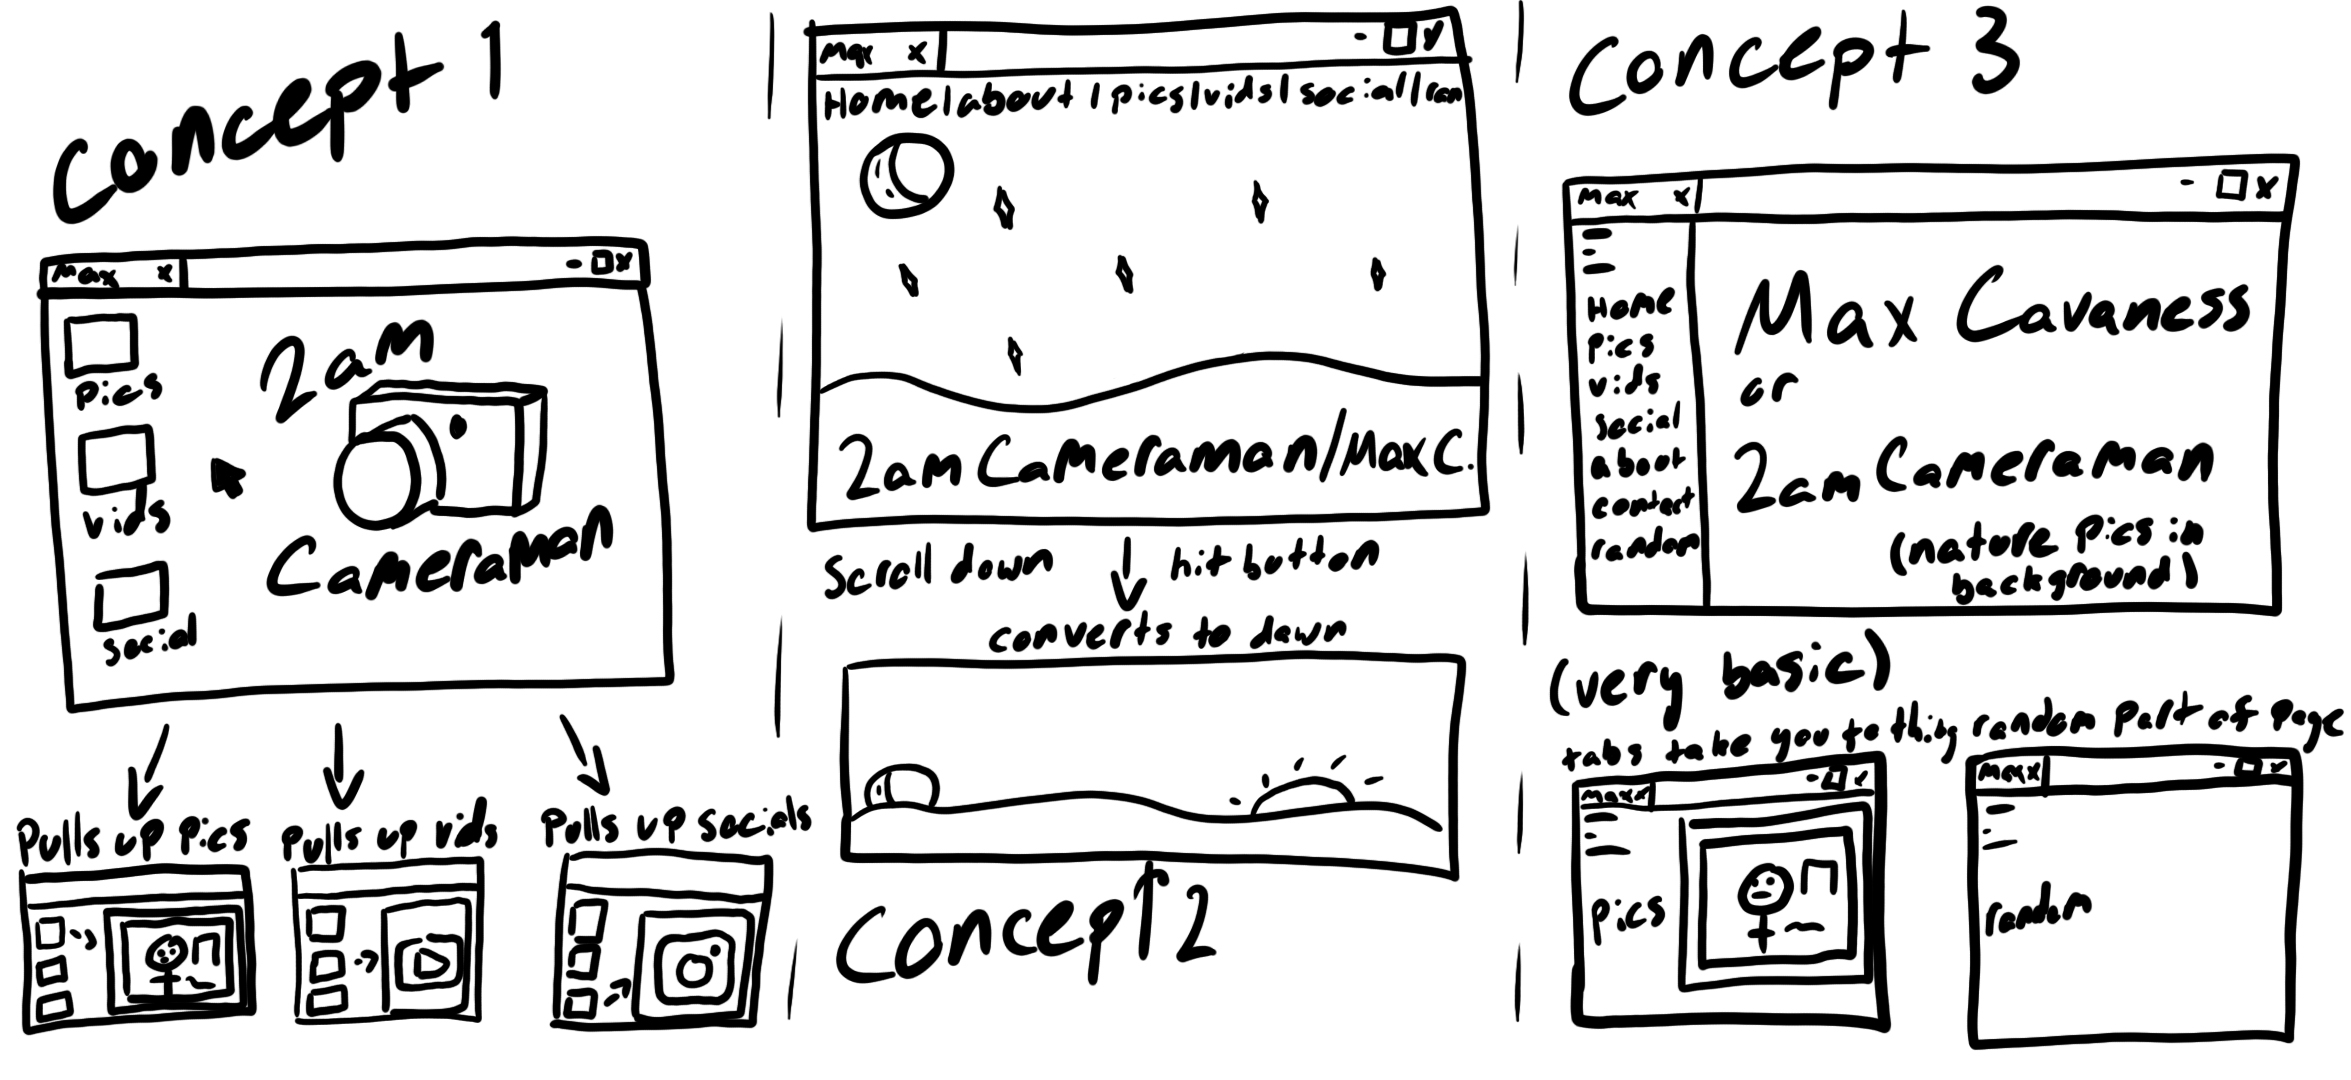 Concept 1
Max x - x
2am
Pics
Vids
Social
Cameraman
Pulls up pics
Pulls up vids
Pulls up socials
Max x -
Home|about|pics|vids|social|ran
2am Cameraman/Max C.
Scroll down hit button
converts to dawn
Concept 2
Concept 3
Max x - x
Home
Pics
Vids
Social
about
contact
random
Max Cavaness
or
2am Cameraman
(nature pics in
background)
(very basic)
tabs take you to thing
random part of page
Max x -
pics
Max x -
random